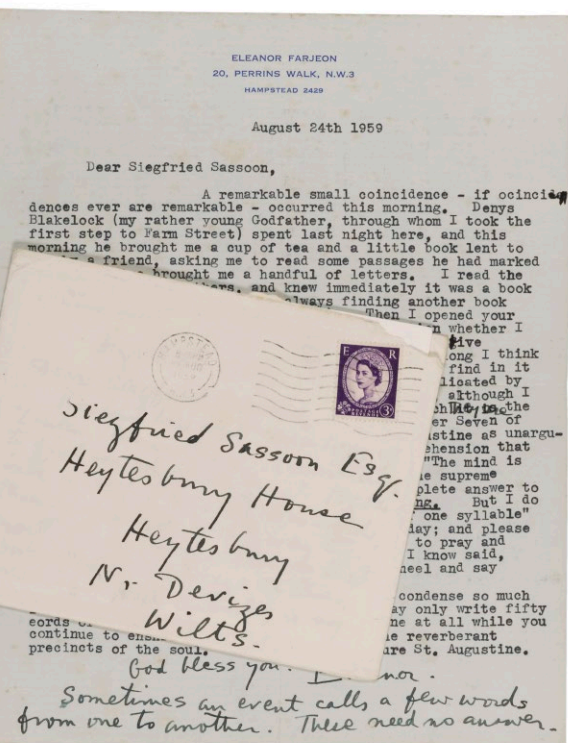 ELEANOR FARJEON
20, PERRINS WALK, N.W.3
HAMPSTEAD 2429
August 24th 1959
Dear Siegfried Sassoon,
A remarkable small coincidence - if
dences ever are remarkable - occurred this morning. Denys
Blakelock (my rather young Godfather, through whom I took the
first step to Farm Street) spent last night here, and this
morning he brought me a cup of tea and a little book lent to
a friend, asking me to read some passages he had marked
brought me a handful of letters. I read the
and knew immediately it was a book
always finding another book
Then I opened your
whether I
I think
find in it
by
although I
the
Seven of
as unargu-
that
"The mind is
supreme
answer to
But I do
one syllable"
and please
to pray and
I know said,
and say
condense so much
only write fifty
at all while you
continue to reverberant
precincts of the soul. St. Augustine.
God bless you.
Sometimes an event calls a few words
from one to another. These need no answer.
HAMPSTEAD
E R
POSTAGE REVENUE
3D
Siegfried Sassoon Esq.
Heytesbury House
Heytesbury
Nr Devizes
Wilts.